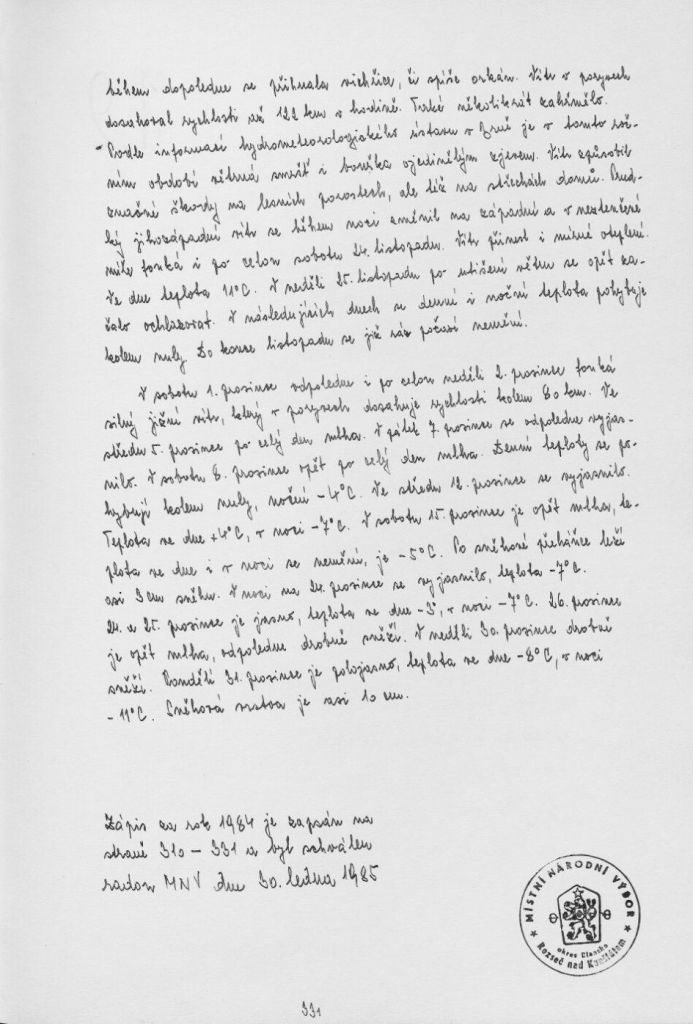 během dopoledne se přihnala vichřice, či spíše orkán. Vítr v poryvech
dosahoval rychlosti až 122 km v hodině. Také několikrát zahřmělo.
Podle informací hydrometeorologického ústavu v Brně je v tomto roč-
ním období větrná smršť i bouřka ojedinělým zjevem. Vítr způsobil
značné škody na lesních porostech, ale též na střechách domů. Prud-
ký jihozápadní vítr se během noci změnil na západní a v neztenčené
míře foukal i po celou sobotu 24. listopadu. Vítr přinesl i mírné oteplení.
Ve dne teplota 11°C. V neděli 25. listopadu po utišení větru se opět za-
čalo ochlazovat. V následujících dnech se denní i noční teplota pohybuje
kolem nuly. Do konce listopadu se již ráz počasí nemění.
V sobotu 1. prosince odpoledne i po celou neděli 2. prosince fouká
silný jižní vítr, který v poryvech dosahuje rychlosti kolem 80 km. Ve
středu 5. prosince po celý den mlha. V pátek 7. prosince se odpoledne vyjas-
nilo. V sobotu 8. prosince opět po celý den mlha. Denní teploty se po-
hybují kolem nuly, noční -4°C. Ve středu 12. prosince se vyjasnilo.
Teplota ve dne +4°C, v noci -7°C. V sobotu 15. prosince je opět mlha, te-
plota ve dne i v noci se nemění, je -5°C. Po sněhové přeháňce leží
asi 3 cm sněhu. V noci na 24. prosince se vyjasnilo, teplota -7°C.
24. a 25. prosince je jasno, teplota ve dne -3°, v noci -7°C. 26. prosince
je opět mlha, odpoledne drobně sněží. V neděli 30. prosince drobně
sněží. Pondělí 31. prosince je polojasno, teplota ve dne -8°C, v noci
-11°C. Sněhová vrstva je asi 10 cm.
Zápis za rok 1984 je zapsán na
straně 310 - 331 a byl schválen
radou MNV dne 30. ledna 1985
MÍSTNÍ NÁRODNÍ VÝBOR
okres Blansko
Rozseč nad Kunštátem
331